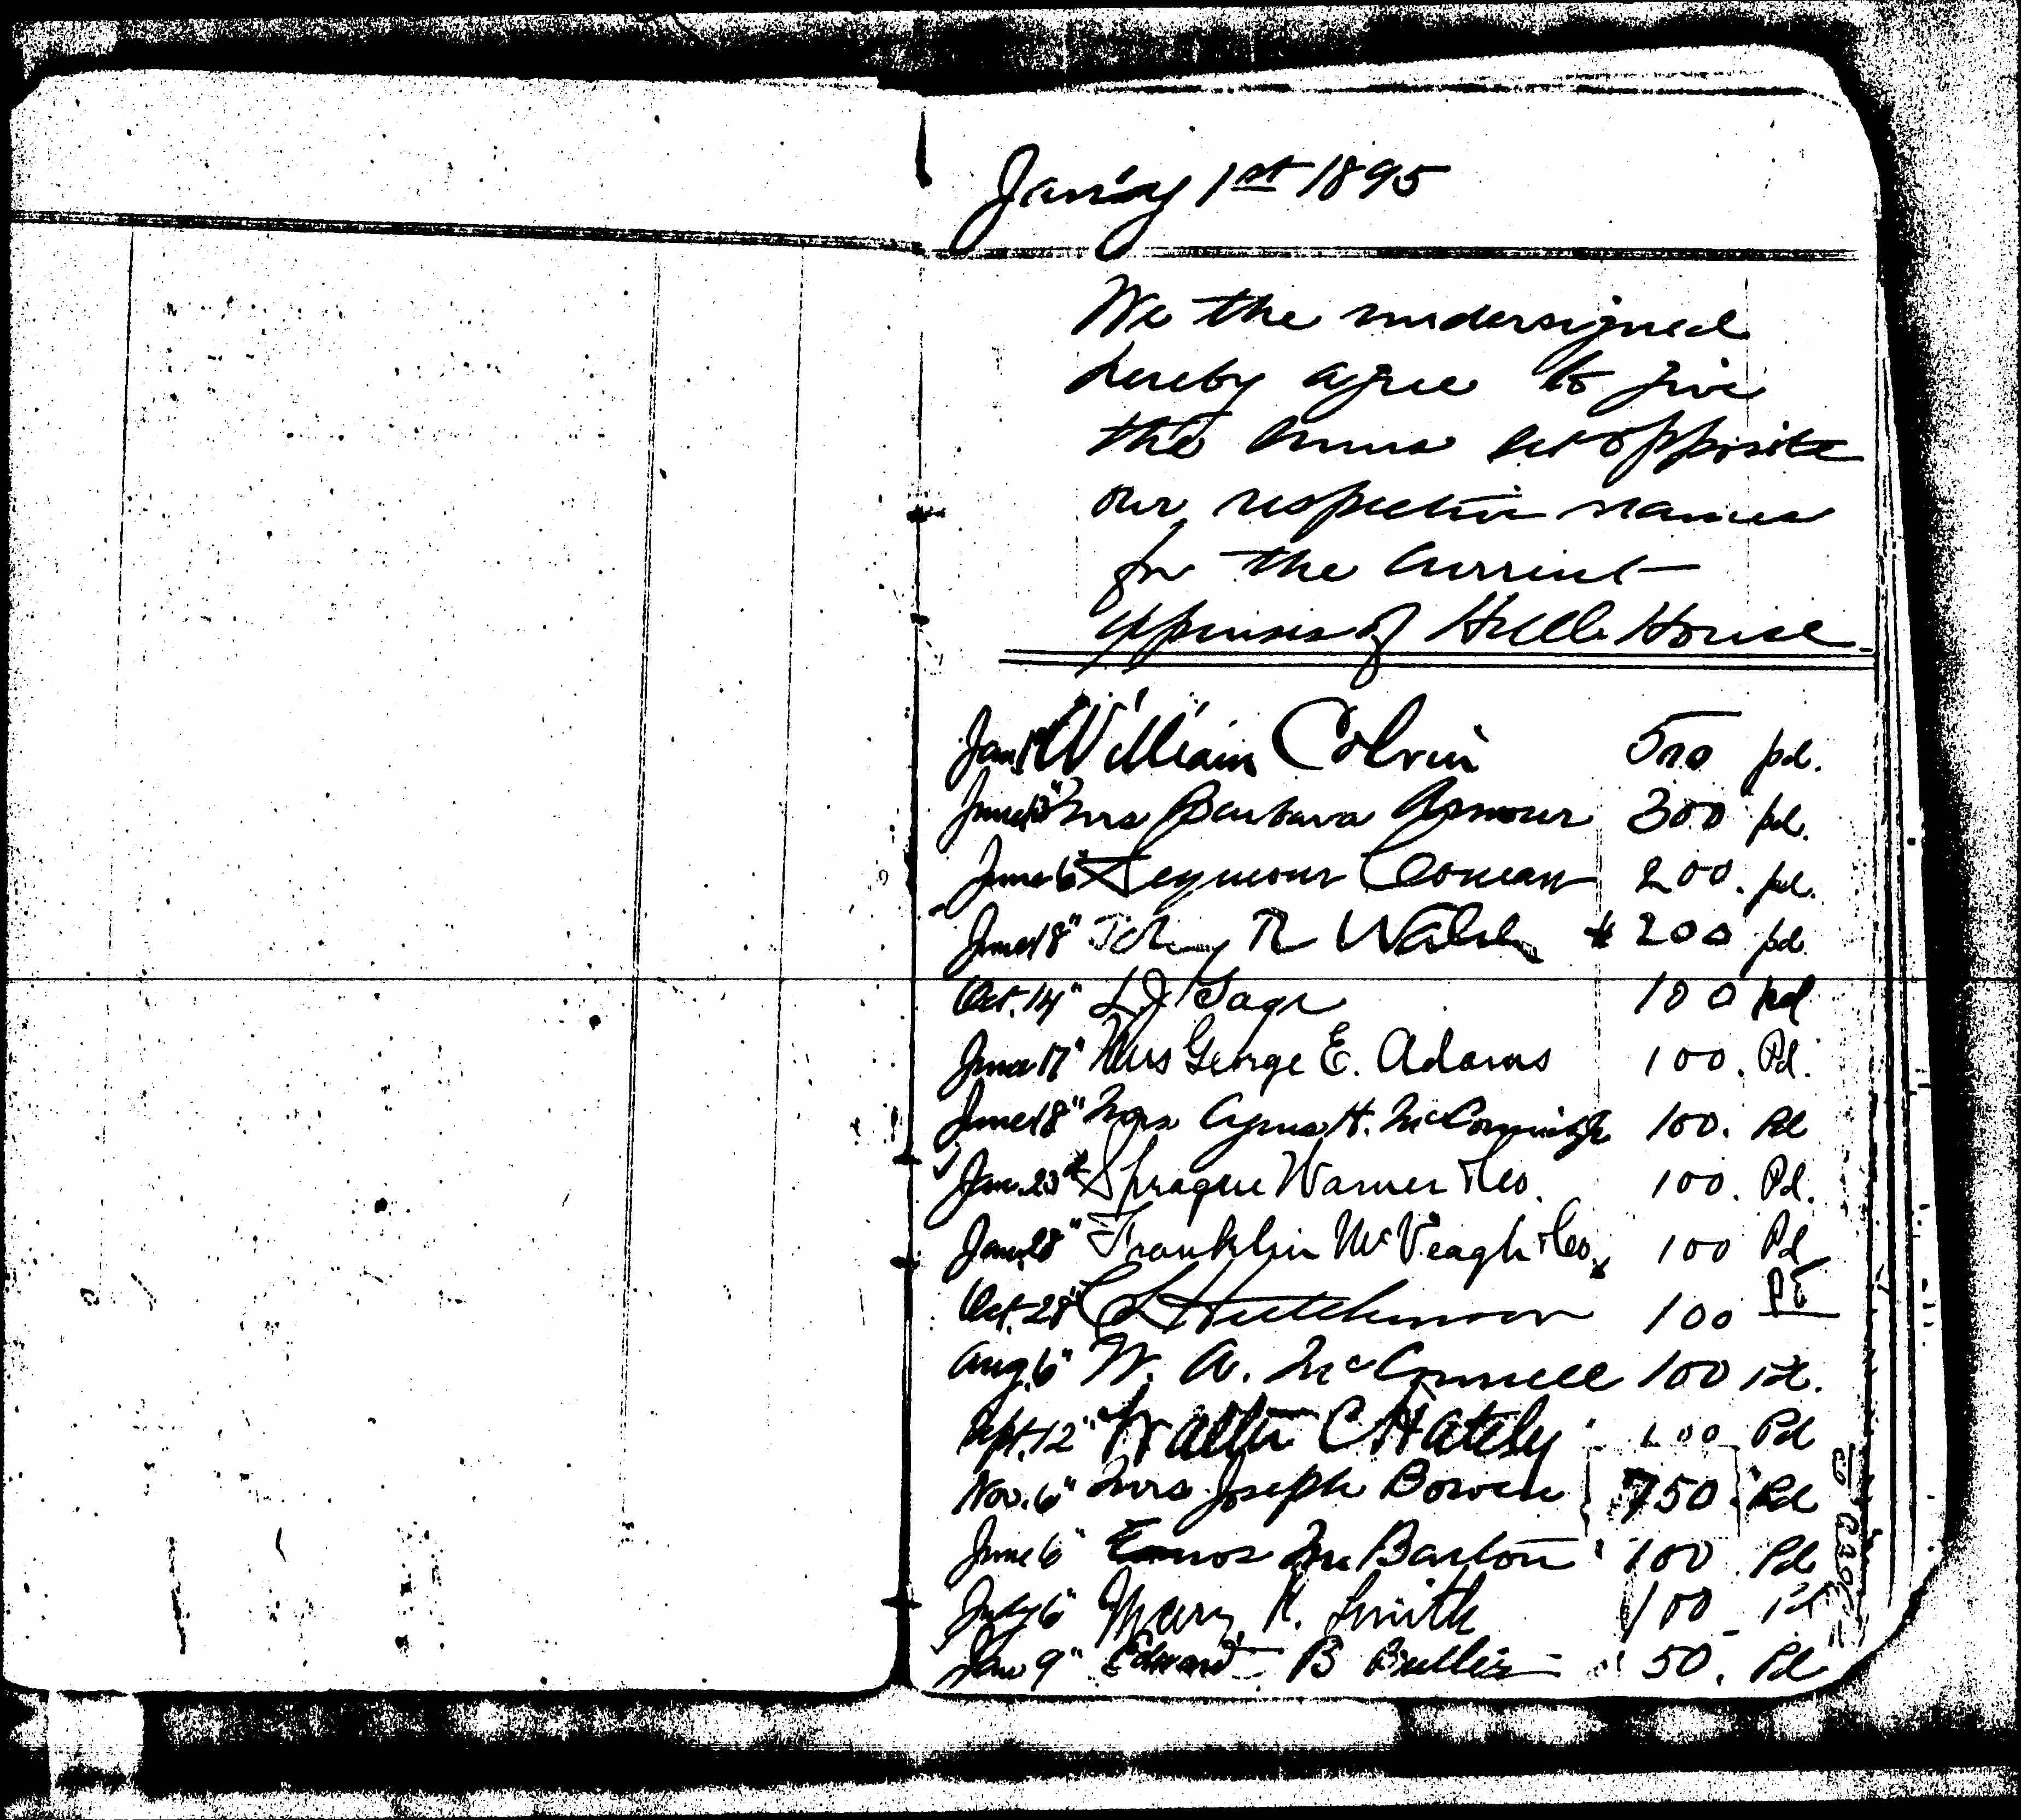 Jan'ry 1st 1895
We the undersigned
hereby agree to give
the sums set opposite
our respective names
for the current
expenses of Hull House
Jan. William Colvin 500 pd.
June 13" Mrs Barbara Armour 300 pd.
June 6" Seymour Coman 200. pd.
June 18" John R Walsh $ 200 pd
Oct. 14" L J Gage 100 pd
June 17" Mrs George E. Adams 100. Pd.
June 18" Mrs Cyrus H. McCormick 100. Pd
Jan. 23d Sprague Warner & Co. 100. Pd.
Jan. 28" Franklin McVeagh & Co. 100 Pd
Oct. 28" C L Hutchinson 100 Pd
Aug. 6" W. A. McConnell 100 Pd.
Sept. 12" Walter C Hately 100 Pd
Nov. 6" Mrs Joseph Bowen 750 Pd
June 6" Enos M. Barton 100 Pd
July 6" Mary R. Smith 100 Pd
Jan 9" Edward B Butler 50. Pd